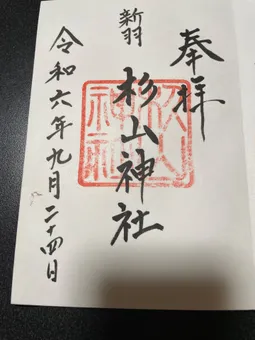 奉拝
新羽
杉山神社
令和六年九月二十四日